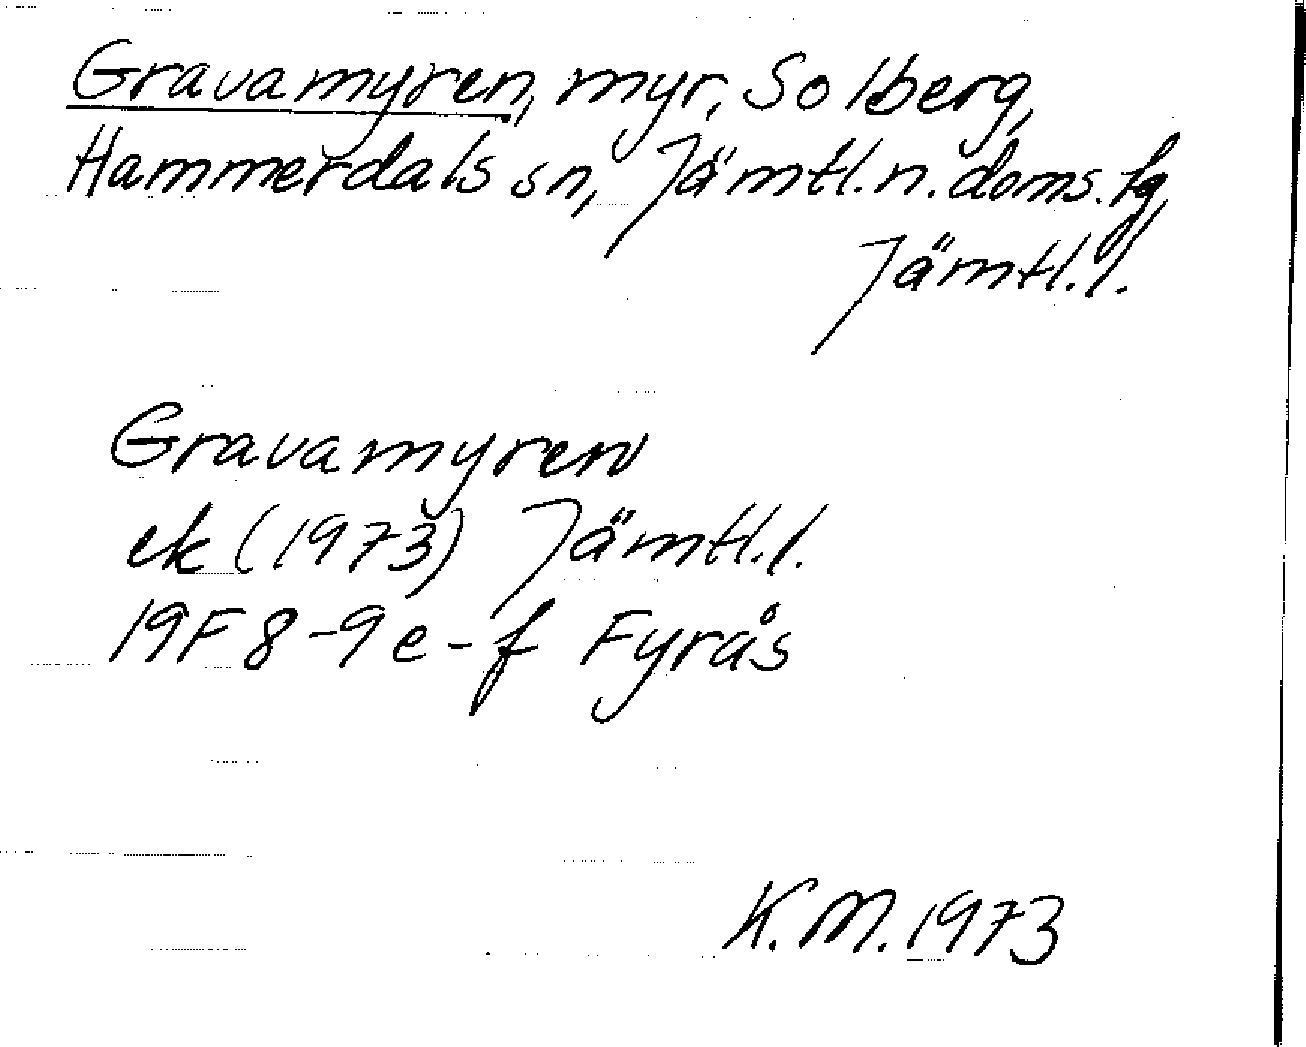 Gravamyren, myr, Solberg,
Hammerdals sn, Jämtl. n. doms. fg,
Jämtl. l.
Gravamyren
ek (1973) Jämtl. l.
19F 8-9 e-f Fyrås
K. M. 1973